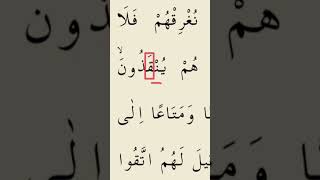 نُغْرِقْهُمْ فَلَا
هُمْ يُنْقَذُونَۙ
ا وَمَتَاعًا اِلٰى
يلَ لَهُمُ اتَّقُوا